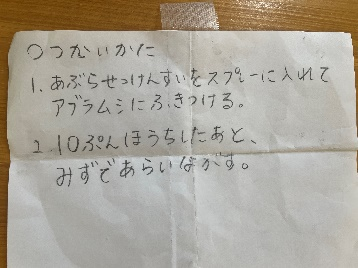 つつかいかに
1. あぶらせっけんすいをスプレーに入れて
アブラムシにふきつける。
2. 10ぷんほうちしたあと、
みずであらいながす。